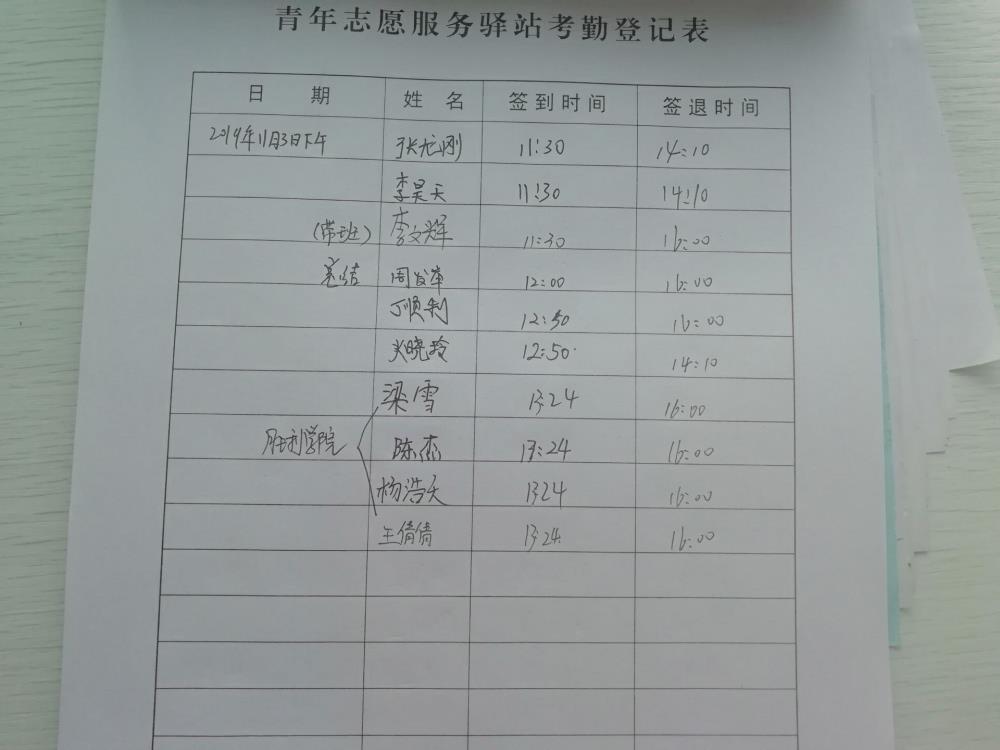 青年志愿服务驿站考勤登记表
日期 姓名 签到时间 签退时间
2019年11月3日下午 张龙刚 11:30 14:10
李昊天 11:30 14:10
(带班) 李文辉 11:30 16:00
总结 周发革 12:00 16:00
丁顺利 12:50 16:00
晓玲 12:50 14:10
梁雪 13:24 16:00
胜利学院 陈杰 13:24 16:00
杨浩天 13:24 16:00
王倩倩 13:24 16:00